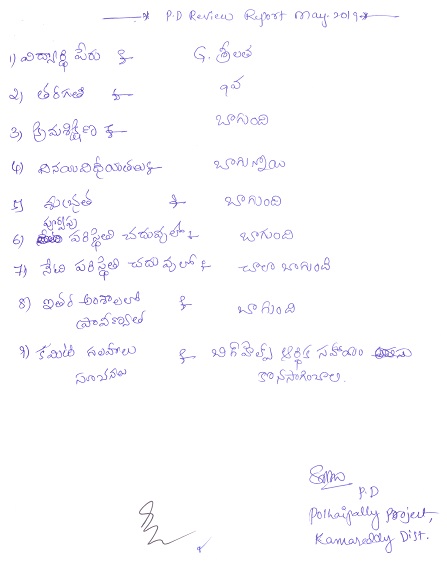 P.D Review Report May-2019
1) విద్యార్థి పేరు :- G. శ్రీలత
2) తరగతి :- 9వ
3) క్రమశిక్షణ :- బాగుంది
4) వినయవిధేయతలు :- బాగున్నాయి
5) శుభ్రత :- బాగుంది
6) పూర్వపు పరిస్థితి చదువులో :- బాగుంది
7) నేటి పరిస్థితి చదువులో :- చాలా బాగుంది
8) ఇతర అంశాలలో :- బాగుంది
ప్రావీణ్యత
9) కమిటి సలహాలు :- బిగ్ హెల్ప్ ఆర్థిక సహాయం
సూచనలు కొనసాగించాలి.
P.D
Polkampally Project,
Kamareddy Dist.